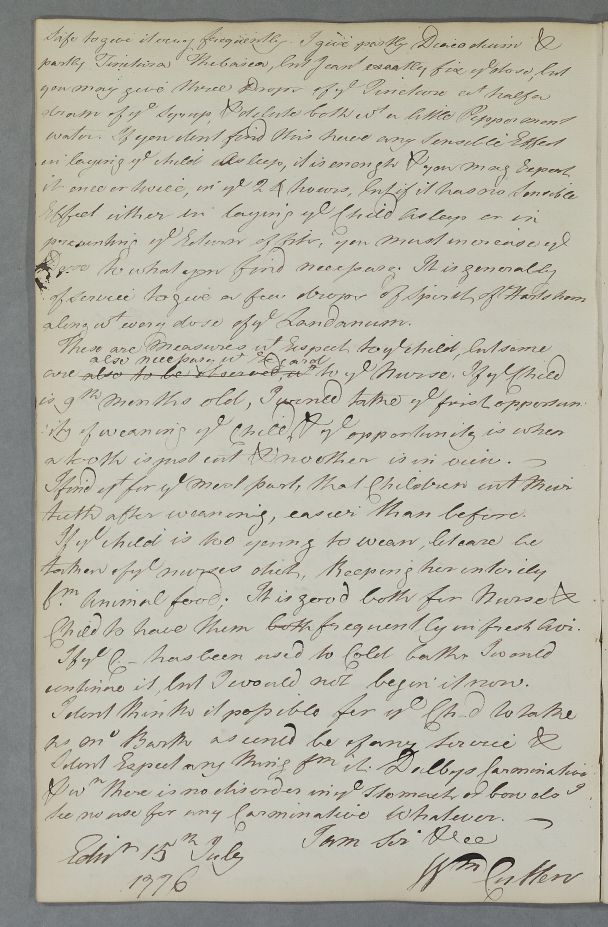 safe to give it very frequently. I give partly Diacodium &
partly Tinctura Thebaica, but I cant exactly fix yᵉ dose, but
you may give three Drops of yᵉ Tincture at half a
dram of yᵉ Syrup & dilute both wᵗ a little Peppermint
water. If you dont find this have any sensible Effect
in laying yᵉ child asleep, it is enough & you may Repeat
it once or twice, in yᵉ 24 hours, but if it has no sensible
Effect either in laying yᵉ Child asleep or in
preventing yᵉ Return of fits, you must increase yᵉ
Dose to what you find necessary. It is generally
of service to give a few drops of Spirit of Hartshorn
along wᵗ every dose of yᵉ Laudanum.
These are measures wᵗ Respect to yᵉ child, but some
also necessary wᵗ Regard
are also to be observed, wᵗ to yᵉ Nurse. If yᵉ Child
is 9ᵗʰ months old, I would take yᵉ first opportun
ity of weaning yᵉ Child, & yᵉ opportunity is when
a tooth is just cut & another is in view.
I find it for yᵉ most part, that Children cut their
teeth after weaning, easier than before.
If yᵉ child is too young to wean, let care be
taken of yᵉ nurses diet, Keeping her entirely
fᵐ Animal food; It is good both for Nurse &
Child to have them both frequently in fresh Air.
If yᵉ C— has been used to Cold bath I would
continue it, but I would not begin it now.
I dont think it possible for yᵉ Ch—d to take
as mᵒ Bark as could be of any Service &
I dont Expect any thing fᵐ it. Dalbys Carminative
& wⁿ there is no disorder in yᵉ Stomach or bowels I
see no use for any Carminative whatever.
I am Sir &cc
Edinʳ 15ᵗʰ July
1776
Wᵐ Cullen